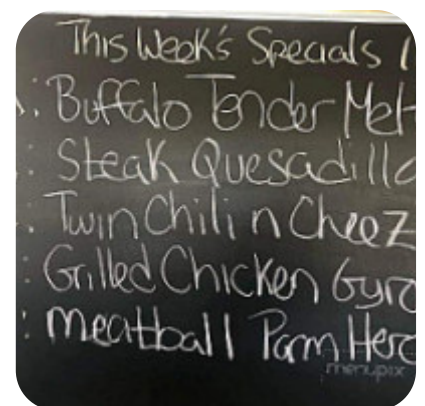 This Week's Specials
: Buffalo Tender Melt
: Steak Quesadilla
: Twin Chili n Cheez
: Grilled Chicken Gyro
: Meatball Parm Hero
menupix